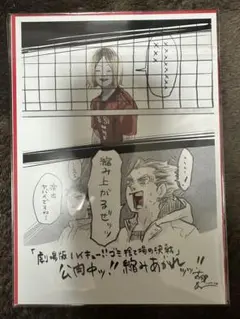 ××××××
×××
縮み上がるぜッッ
「劇場版ハイキュー!!ゴミ捨て場の決戦」
公開中ッ!!縮みあがれッッ!!